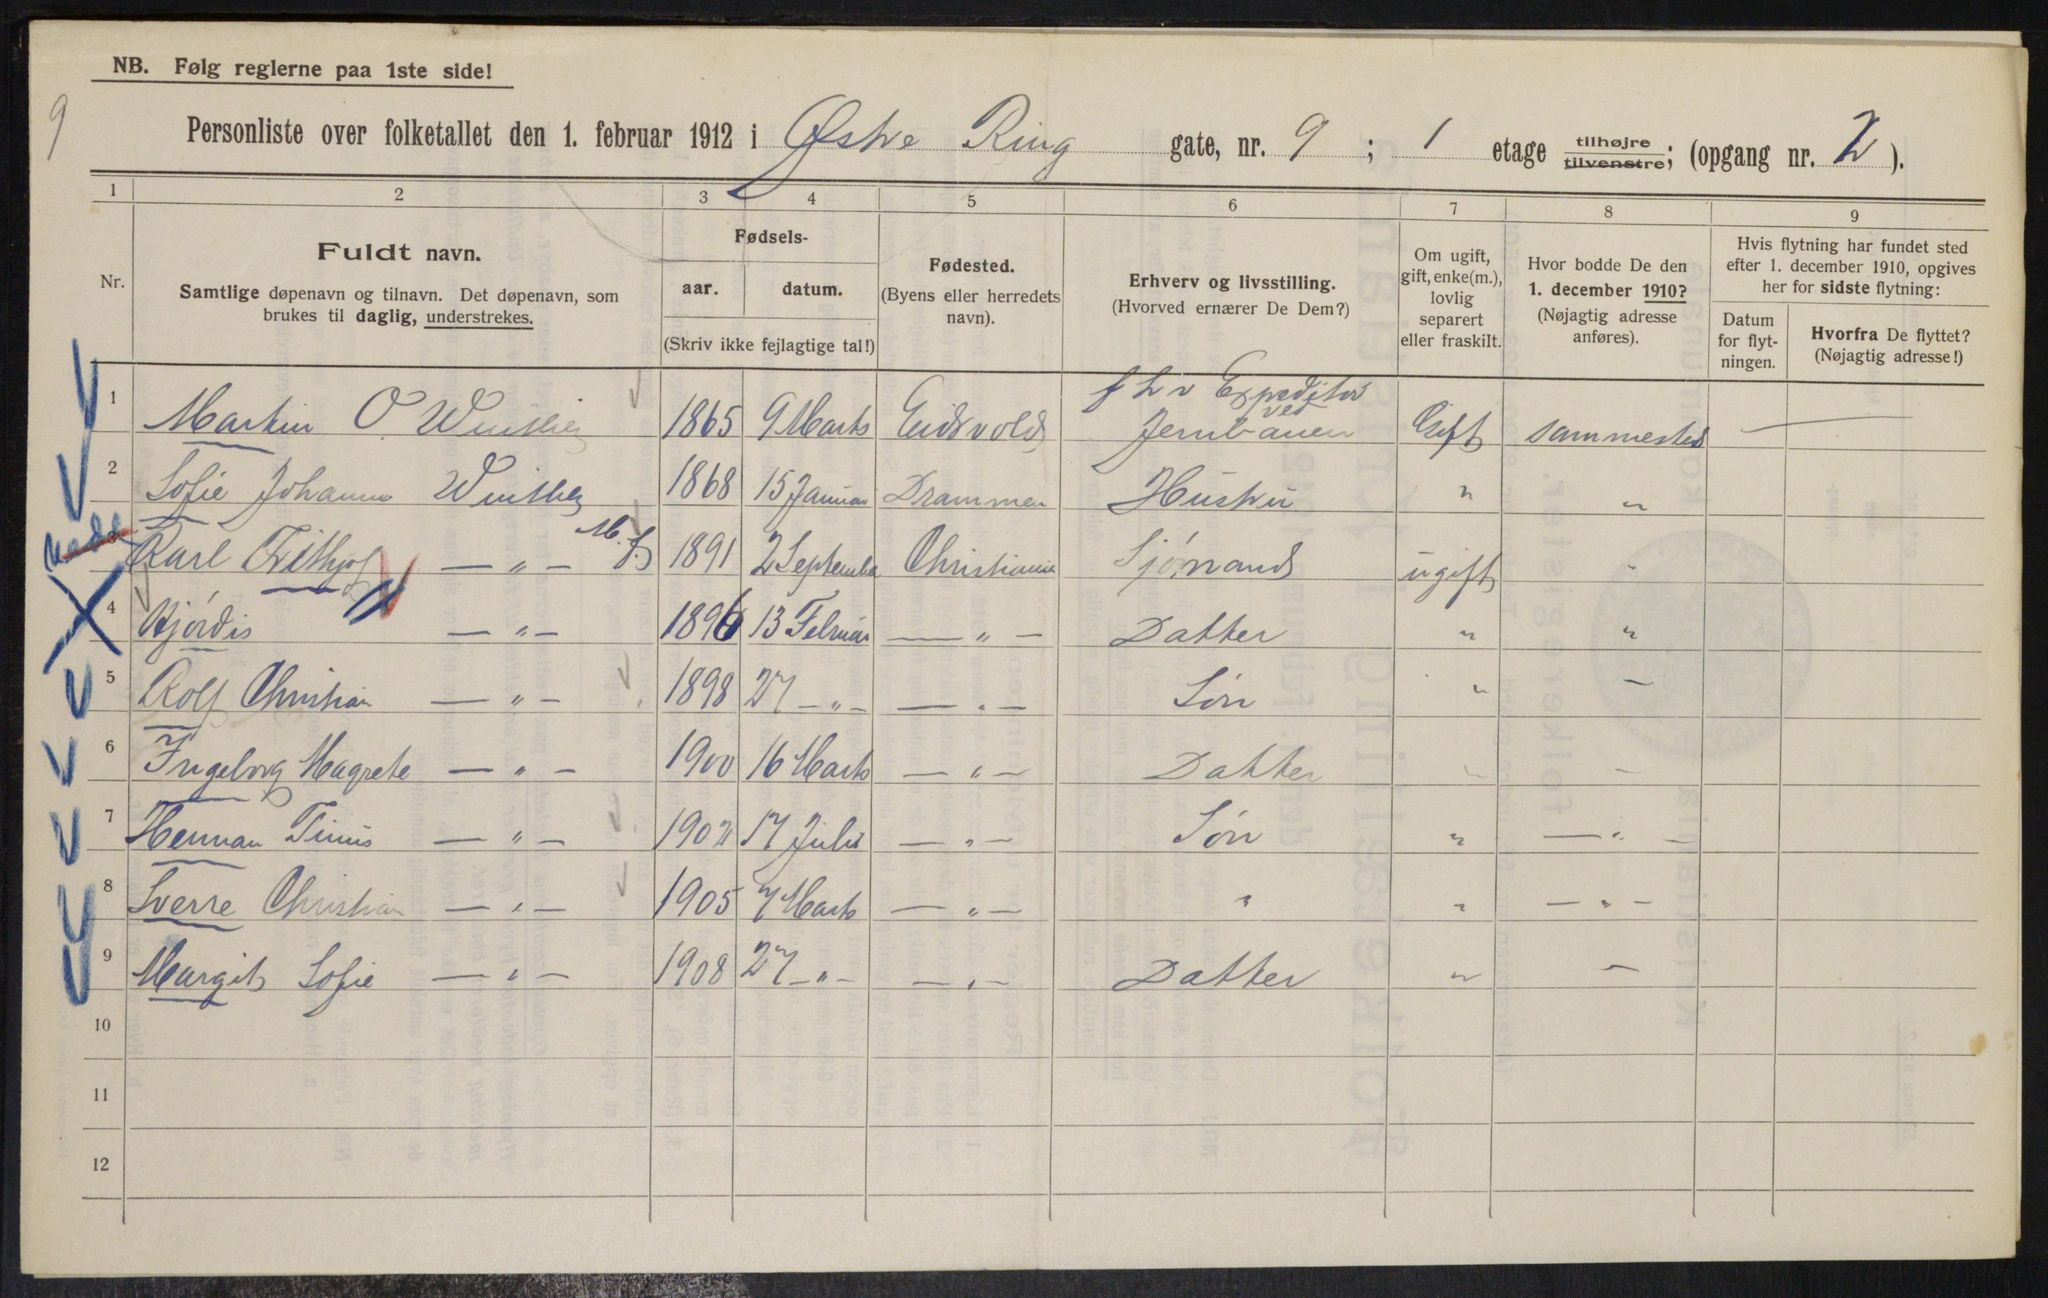 NB. Følg reglerne paa 1ste side!
9
Personliste over folketallet den 1. februar 1912 i Østre Ring gate, nr. 9 ; 1 etage tilhøjre tilvenstre; (opgang nr. 2 ).
1 2 3 4 5 6 7 8 9
Nr.
Fuldt navn.
Samtlige døpenavn og tilnavn. Det døpenavn, som
brukes til daglig, understrekes.
Fødsels-
aar. datum.
(Skriv ikke fejlagtige tal!)
Fødested.
(Byens eller herredets
navn).
Erhverv og livsstilling.
(Hvorved ernærer De Dem?)
Om ugift,
gift, enke(m.),
lovlig
separert
eller fraskilt.
Hvor bodde De den
1. december 1910?
(Nøjagtig adresse
anføres).
Hvis flytning har fundet sted
efter 1. december 1910, opgives
her for sidste flytning:
Datum
for flyt-
ningen.
Hvorfra De flyttet?
(Nøjagtig adresse!)
1 Martin O. Winther 1865 9 Marts Eidsvold Expeditør ved Jernbanen Gift sammested —
2 Sofie Johanne Winther 1868 15 Januar Drammen Hustru " "
3 Karl Frithjof — " — 1891 2 September Christiania Sjømand ugift "
4 Hjørdis — " — 1896 13 Februar — " — Datter " "
5 Rolf Christian — " — 1898 27 — " — — " — Søn " —
6 Ingeborg Magrete — " — 1900 16 Marts — " — Datter " —
7 Herman Tinius — " — 1902 17 Juli — " — Søn " — " —
8 Sverre Christian — " — 1905 7 Marts — " — " " — " —
9 Margit Sofie — " — 1908 27 — " — — " — Datter " —
10
11
12